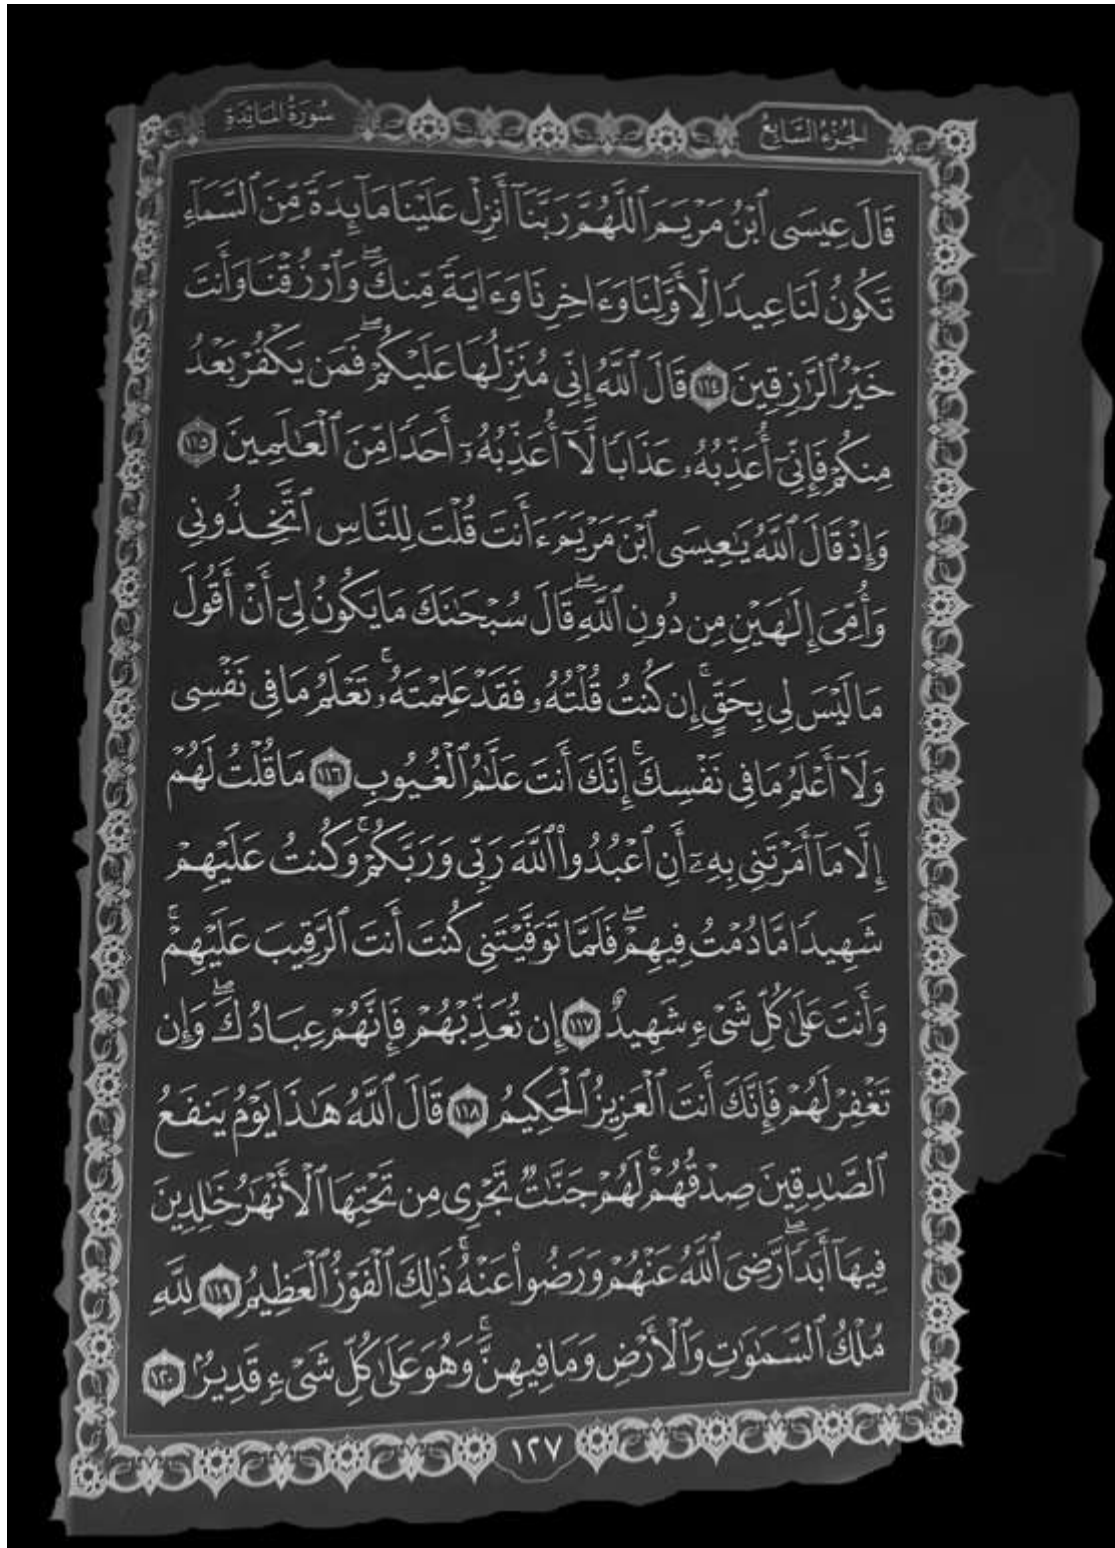 الجزء السابع
سورة المائدة
قَالَ عِيسَى ٱبْنُ مَرْيَمَ ٱللَّهُمَّ رَبَّنَآ أَنزِلْ عَلَيْنَا مَآئِدَةً مِّنَ ٱلسَّمَآءِ
تَكُونُ لَنَا عِيدًا لِّأَوَّلِنَا وَءَاخِرِنَا وَءَايَةً مِّنكَ ۖ وَٱرْزُقْنَا وَأَنتَ
خَيْرُ ٱلرَّٰزِقِينَ ١١٤ قَالَ ٱللَّهُ إِنِّى مُنَزِّلُهَا عَلَيْكُمْ ۖ فَمَن يَكْفُرْ بَعْدُ
مِنكُمْ فَإِنِّىٓ أُعَذِّبُهُۥ عَذَابًا لَّآ أُعَذِّبُهُۥٓ أَحَدًا مِّنَ ٱلْعَٰلَمِينَ ١١٥
وَإِذْ قَالَ ٱللَّهُ يَٰعِيسَى ٱبْنَ مَرْيَمَ ءَأَنتَ قُلْتَ لِلنَّاسِ ٱتَّخِذُونِى
وَأُمِّىَ إِلَٰهَيْنِ مِن دُونِ ٱللَّهِ ۖ قَالَ سُبْحَٰنَكَ مَا يَكُونُ لِىٓ أَنْ أَقُولَ
مَا لَيْسَ لِى بِحَقٍّ ۚ إِن كُنتُ قُلْتُهُۥ فَقَدْ عَلِمْتَهُۥ ۚ تَعْلَمُ مَا فِى نَفْسِى
وَلَآ أَعْلَمُ مَا فِى نَفْسِكَ ۚ إِنَّكَ أَنتَ عَلَّٰمُ ٱلْغُيُوبِ ١١٦ مَا قُلْتُ لَهُمْ
إِلَّا مَآ أَمَرْتَنِى بِهِۦٓ أَنِ ٱعْبُدُوا۟ ٱللَّهَ رَبِّى وَرَبَّكُمْ ۚ وَكُنتُ عَلَيْهِمْ
شَهِيدًا مَّا دُمْتُ فِيهِمْ ۖ فَلَمَّا تَوَفَّيْتَنِى كُنتَ أَنتَ ٱلرَّقِيبَ عَلَيْهِمْ ۚ
وَأَنتَ عَلَىٰ كُلِّ شَىْءٍ شَهِيدٌ ١١٧ إِن تُعَذِّبْهُمْ فَإِنَّهُمْ عِبَادُكَ ۖ وَإِن
تَغْفِرْ لَهُمْ فَإِنَّكَ أَنتَ ٱلْعَزِيزُ ٱلْحَكِيمُ ١١٨ قَالَ ٱللَّهُ هَٰذَا يَوْمُ يَنفَعُ
ٱلصَّٰدِقِينَ صِدْقُهُمْ ۚ لَهُمْ جَنَّٰتٌ تَجْرِى مِن تَحْتِهَا ٱلْأَنْهَٰرُ خَٰلِدِينَ
فِيهَآ أَبَدًا ۚ رَّضِىَ ٱللَّهُ عَنْهُمْ وَرَضُوا۟ عَنْهُ ۚ ذَٰلِكَ ٱلْفَوْزُ ٱلْعَظِيمُ ١١٩ لِلَّهِ
مُلْكُ ٱلسَّمَٰوَٰتِ وَٱلْأَرْضِ وَمَا فِيهِنَّ ۚ وَهُوَ عَلَىٰ كُلِّ شَىْءٍ قَدِيرٌۢ ١٢٠
١٢٧